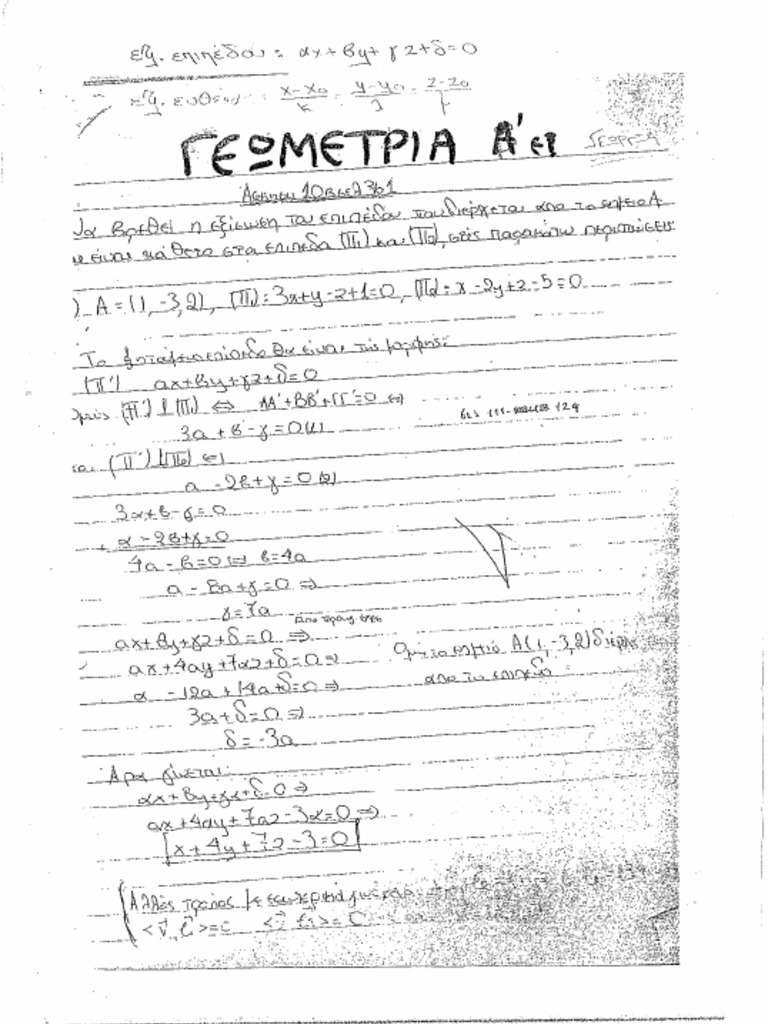 εξ. επιπέδου: αx+βy+γz+δ=0
εξ. ευθείας: x-x₀/κ = y-y₀/λ = z-z₀/μ
ΓΕΩΜΕΤΡΙΑ Α' ετ
Άσκηση 10 σελ 361
Να βρεθεί η εξίσωση του επιπέδου που διέρχεται από το σημείο Α
κ είναι κάθετο στα επίπεδα (Π₁) και (Π₂), στις παρακάτω περιπτώσεις
) Α = (1, -3, 2), (Π₁): 3x+y-z+1=0, (Π₂): x-2y+z-5=0
Το ζητούμενο επίπεδο θα είναι της μορφής:
(Π') αx+βy+γz+δ=0
Όμως (Π')⊥(Π₁) ⇔ ΑΑ'+ΒΒ'+ΓΓ'=0 ⇔
3α+β-γ=0 (1)
και (Π')⊥(Π₂) ⇔
α-2β+γ=0 (2)
3α+β-γ=0
+ α-2β+γ=0
4α-β=0 ⇔ β=4α
α-8α+γ=0 ⇒
γ=7α
αx+βy+γz+δ=0 ⇒
αx+4αy+7αz+δ=0 ⇒ Όμως το σημείο Α(1,-3,2) διέρχ
α-12α+14α+δ=0 ⇒ από το επίπεδο
3α+δ=0 ⇒
δ=-3α
Άρα γίνεται:
αx+βy+γz+δ=0 ⇒
αx+4αy+7αz-3α=0 ⇒
x+4y+7z-3=0
Άλλος τρόπος με εσωτερικό